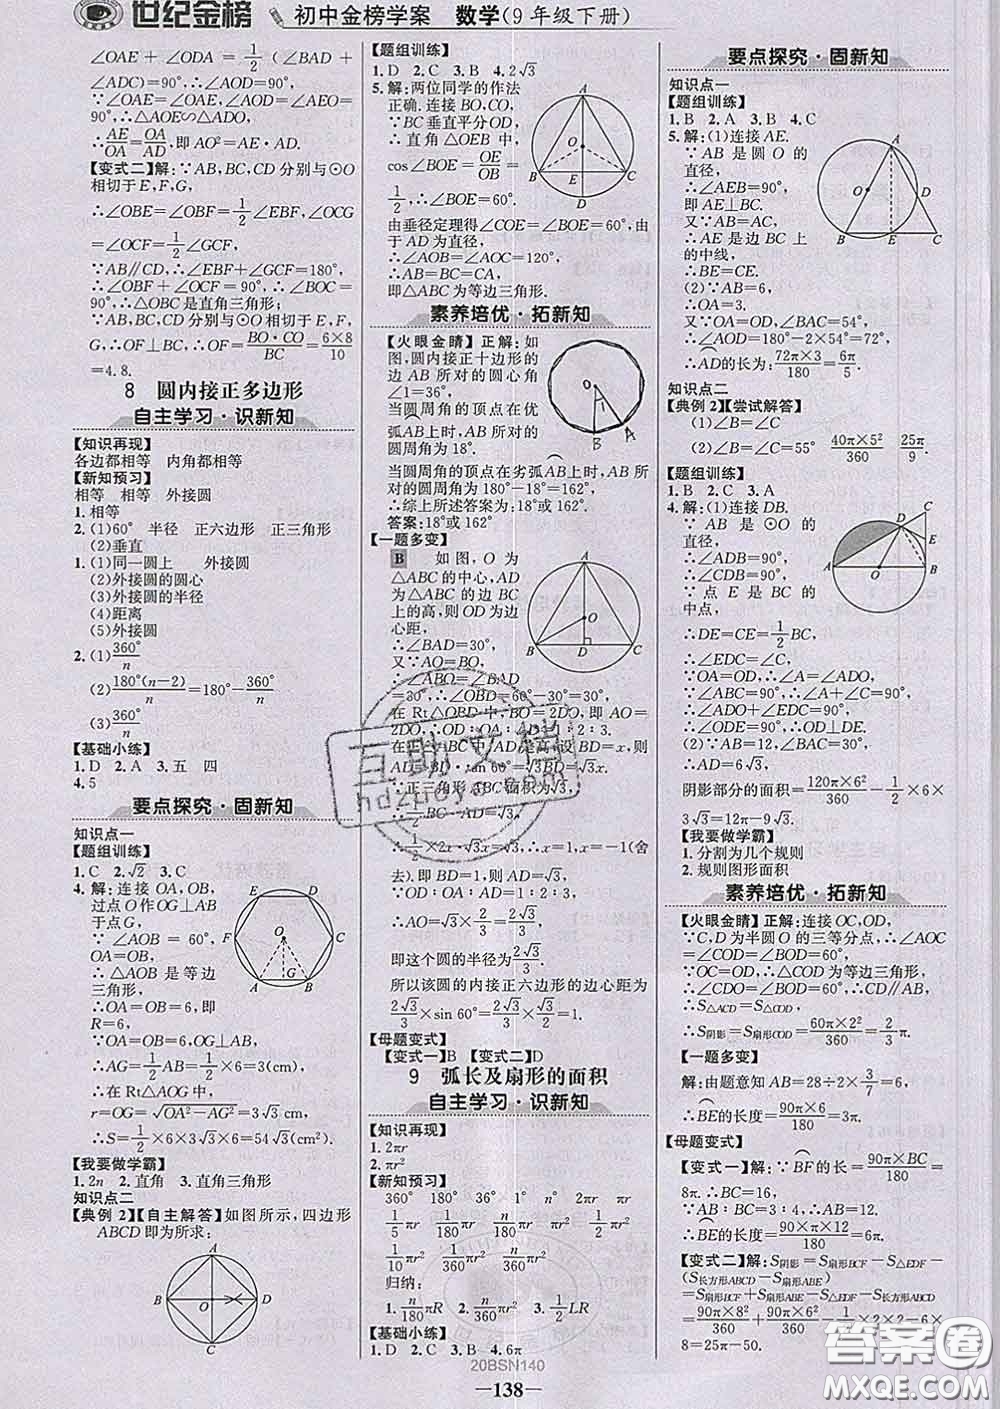 世纪金榜 初中金榜学案 数学(9年级下册)
∠OAE+∠ODA=1/2(∠BAD+
∠ADC)=90°.
∵∠OAE=∠OAE,∠AEO=∠AOD=
90°,∴△AOE∽△ADO,
∴AE/OA=OA/AD,即AO²=AE·AD.
【变式二】解:∵AB,BC,CD分别与⊙O
相切于E,F,G,
∴∠OBE=∠OBF=1/2∠EBF,∠OCG
=∠OCF=1/2∠GCF,
∵AB∥CD,∴∠EBF+∠GCF=180°,
∴∠OBF+∠OCF=90°,∴∠BOC=
90°,∴△OBC是直角三角形;
∵AB,BC,CD分别与⊙O相切于E,F,
G,∴OF⊥BC,∴OF=BO·CO/BC=6×8/10
=4.8.
8 圆内接正多边形
自主学习·识新知
【知识再现】
各边都相等 内角都相等
【新知预习】
相等 相等 外接圆
1.相等
2.(1)60° 半径 正六边形 正三角形
(2)垂直
1.(1)同一圆上 外接圆
(2)外接圆的圆心
(3)外接圆的半径
(4)距离
(5)外接圆
2.(1)360°/n
(2)180°(n-2)/n=180°-360°/n
(3)360°/n
【基础小练】
1.D 2.A 3.五 四
4.5
要点探究·固新知
知识点一
【题组训练】
1.C 2.√2 3.C
4.解:连接OA,OB,
过点O作OG⊥AB
于点G,
∵∠AOB=60°,
OA=OB,
∴△AOB是等边
三角形,
∴OA=OB=6,即
R=6,
∵OA=OB=6,OG⊥AB,
∴AG=1/2AB=1/2×6=3(cm),
∴在Rt△AOG中,
r=OG=√(OA²-AG²)=3√3 cm,
∴S=1/2×6×3√3×6=54√3(cm²).
【我要做学霸】
1.2n 2.直角 3.直角三角形
知识点二
【典例2】【自主解答】如图所示,四边形
ABCD即为所求:
【题组训练】
1.D 2.C 3.B 4.2√3
5.解:两位同学的作法
正确.连接BO,CO,
∵BC垂直平分OD,
∴直角△OEB中,
cos∠BOE=OE/OB=
1/2,∠BOE=60°.
由垂径定理得∠COE=∠BOE=60°,由
于AD为直径,
∴∠AOB=∠AOC=120°,
∴AB=BC=CA,
即△ABC为等边三角形.
素养培优·拓新知
【火眼金睛】正解:如
图,圆内接正十边形的
边AB所对的圆心角
∠1=36°,
当圆周角的顶点在优
弧AB上时,AB所对的
圆周角为18°.
当圆周角的顶点在劣弧AB上时,AB所
对的圆周角为180°-18°=162°,
∴综上所述答案为:18°或162°.
答案:18°或162°
【一题多变】
B 如图,O为
△ABC的中心,AD
为△ABC的BC边
上的高,则OD为边
心距,
∴∠BAD=30°,
又∵AO=BO,
∴∠ABO=∠BAD
=30°,∴∠OBD=60°-30°=30°,
在Rt△OBD中,BO=2DO,即AO=
2DO,∴OD∶OA∶AD=1∶2∶3.
∵正三角形ABC面积为√3,
∴1/2BC·AD=√3,
∴1/2×2x·√3x=√3,∴x=1,x=-1(舍
去).即BD=1,则AD=√3,
∵OD∶OA∶AD=1∶2∶3,
∴AO=√3×2/3=2√3/3,
即这个圆的半径为2√3/3.
所以该圆的内接正六边形的边心距为
2√3/3×sin 60°=2√3/3×√3/2=1.
【母题变式】
【变式一】B 【变式二】D
9 弧长及扇形的面积
自主学习·识新知
【知识再现】
1.2πr
2.πr²
【新知预习】
360° 180° 36° 1° n° 2πr πr
1/5πr 1/180πr n/180πr πr² 1/2πr²
1/10πr² 1/360πr² n/360πr²
归纳:
1.n/180πR 2.n/360πR² 3.1/2LR
【基础小练】
1.D 2.C 3.B 4.6π
要点探究·固新知
知识点一
【题组训练】
1.B 2.A 3.B 4.C
5.解:(1)连接AE.
∵AB是圆O的
直径,
∴∠AEB=90°,
即AE⊥BC.
又∵AB=AC,
∴AE是边BC上
的中线,
∴BE=CE.
(2)∵AB=6,
∴OA=3.
又∵OA=OD,∠BAC=54°,
∴∠AOD=180°-2×54°=72°,
∴AD的长为:72π×3/180=6π/5.
知识点二
【典例2】【尝试解答】
(1)∠B=∠C
(2)∠B=∠C=55° 40π×5²/360 25π/9
【题组训练】
1.B 2.C 3.A
4.解:(1)连接DB.
∵AB是⊙O的
直径,
∴∠ADB=90°,
∴∠CDB=90°,
∵点E是BC的
中点,
∴DE=CE=1/2BC,
∴∠EDC=∠C,
∵OA=OD,∴∠A=∠ADO,
∵∠ABC=90°,∴∠A+∠C=90°,
∴∠ADO+∠EDC=90°,
∴∠ODE=90°,∴OD⊥DE.
(2)∵AB=12,∠BAD=30°,
∴AD=6√3.
阴影部分的面积=120π×6²/360-1/2×6×
3√3=12π-9√3.
【我要做学霸】
1.分割为几个规则
2.规则图形面积
素养培优·拓新知
【火眼金睛】正解:连接OC,OD,
∵C,D为半圆O的三等分点,∴∠AOC
=∠COD=∠BOD=60°,
∵OC=OD,∴△COD为等边三角形,
∴∠CDO=∠BOD=60°,∴CD∥AB,
∴S△ACD=S△COD,
∴S阴影=S扇形COD=60π×2²/360=2/3π.
【一题多变】
解:由题意知AB=28÷2×3/7=6,
∴BE的长度=90π×6/180=3π.
【母题变式】
【变式一】解:∵BF的长=90π×BC/180=
8π.∴BC=16,
∵AB∶BC=3∶4,∴AB=12,
∴BE的长度=90π×12/180=6π.
【变式二】解:S阴影=S扇形BCF-S△EDF-
(S长方形ABCD-S扇形ABE)
=S扇形BCF+S扇形ABE-S△EDF-S长方形ABCD
=90π×8²/360+90π×6²/360-1/2×2×2-6×
8=25π-50.
互助文档
hdzuoye.com
20BSN140
—138—
答案圈
MXQE.COM